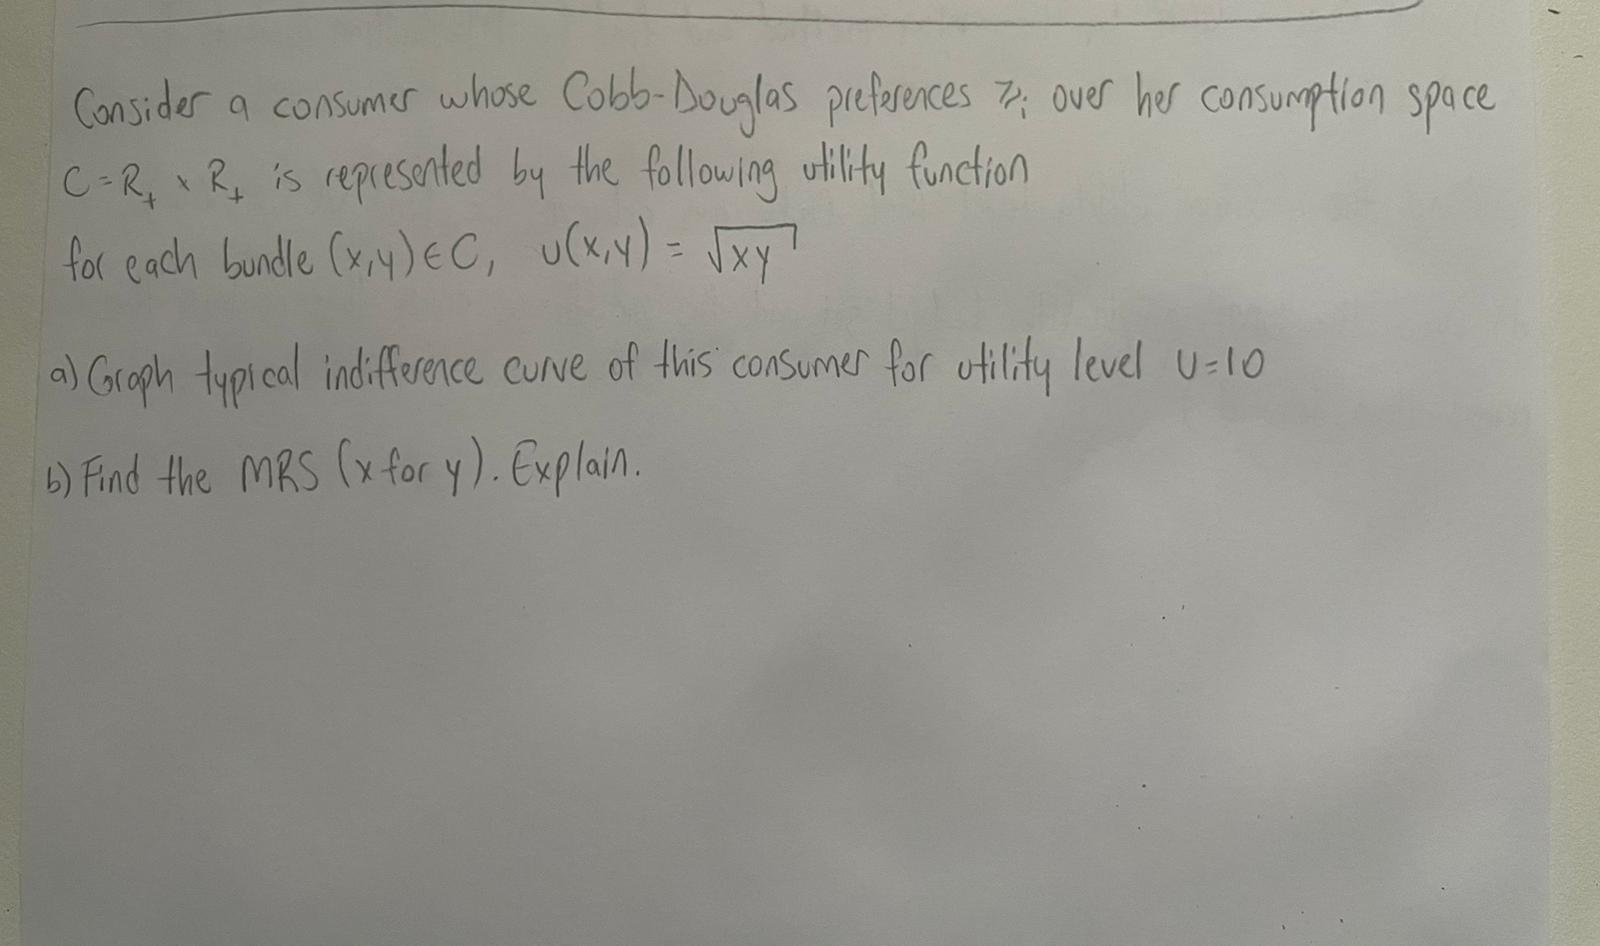 Consider a consumer whose Cobb-Douglas preferences ≿i over her consumption space
C = R+ x R+ is represented by the following utility function
for each bundle (x,y) ∈ C, u(x,y) = √xy
a) Graph typical indifference curve of this consumer for utility level U=10
b) Find the MRS (x for y). Explain.